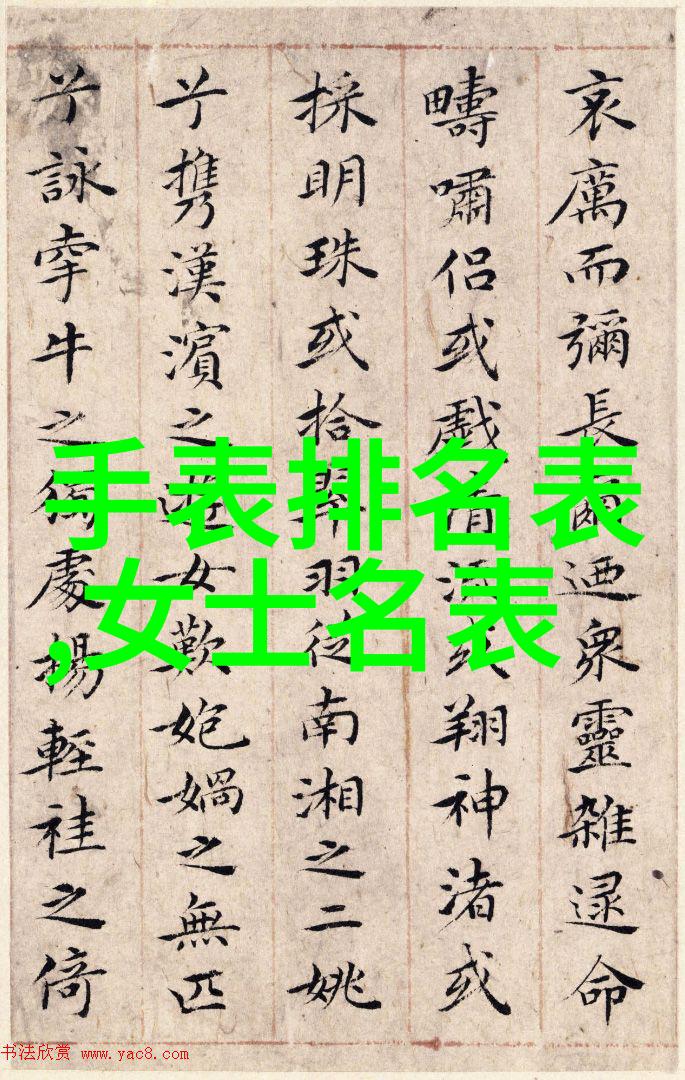 哀厲而彌長爾迺衆靈雜遝命
疇嘯侶或戲清或翔神渚或
採明珠或拾翠羽從南湘之二姚
兮攜漢濱之遊女歎媧之無匹
兮詠牽牛之獨處揚輕袿之倚
手表排名表
,女士名表
书法欣赏 www.yac8.com